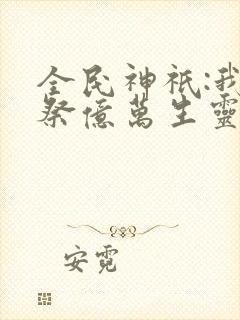 全民神祇:我
祭億萬生靈
安霓